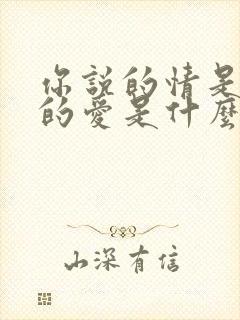 你說的情是
的愛是什麼
山深有信